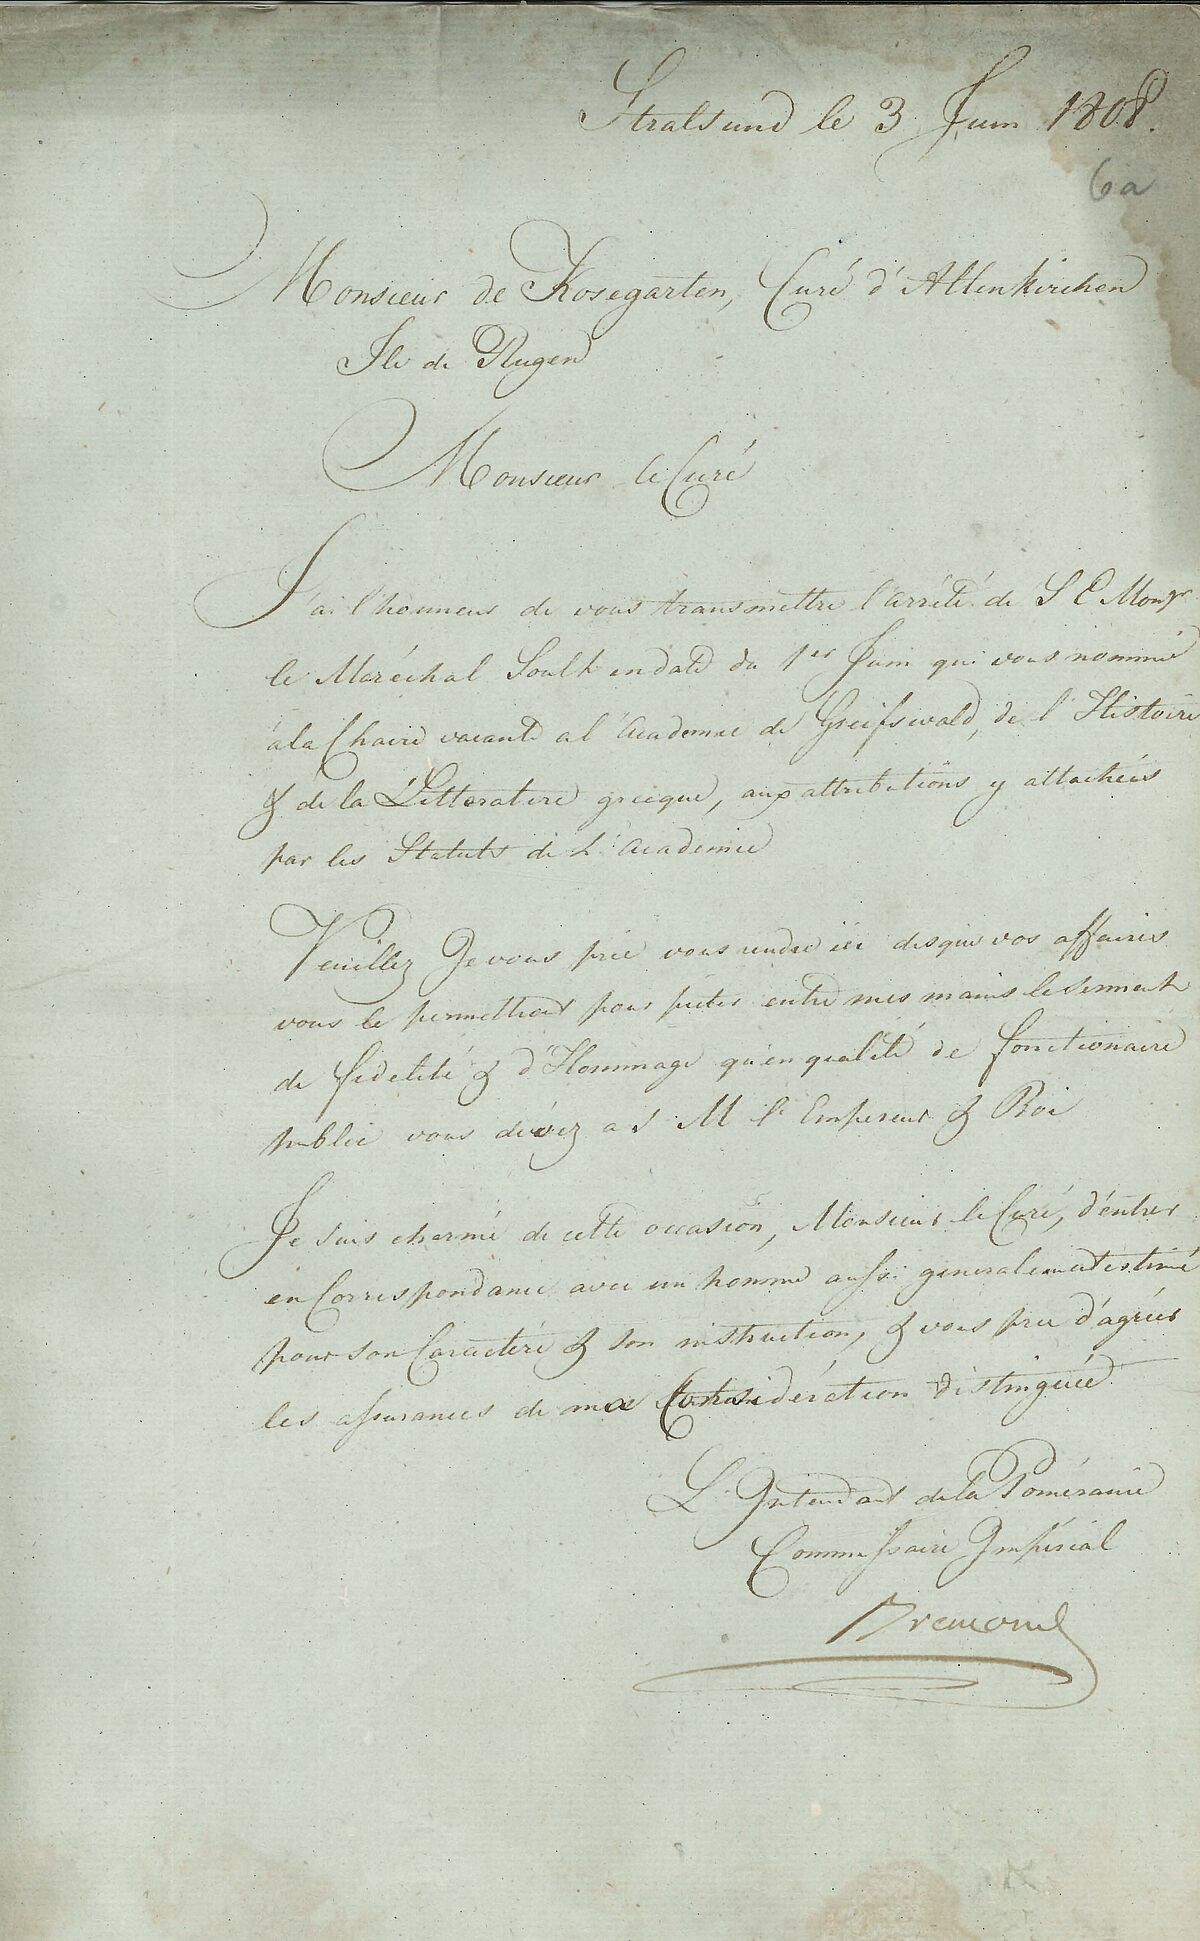 Stralsund le 3 Juin 1808.
6a
Monsieur de Kosegarten, Curé d'Altenkirchen
Ile de Rugen
Monsieur le Curé
J'ai l'honneur de vous transmettre l'arrêté de S E Mongr
le Maréchal Soult en date du 1er Juin qui vous nomme
à la Chaire vacante a l'Academie de Greifswald, de l'Histoire
& de la Litterature grecque, aux attributions y attachées
par les Statuts de L'Academie
Veuillez Je vous prie vous rendre ici desque vos affaires
vous le permettront pour prêter entre mes mains le serment
de fidelité & d'Hommage qu'en qualité de fonctionaire
public vous devez a S M l'Empereur & Roi
Je suis charmé de cette occasion, Monsieur le Curé, d'entrer
en Correspondance avec un homme aussi generalement estimé
pour son Caractére & son instruction, & vous prie d'agréer
les assurances de ma Considération distinguée
L'Intendant de la Poméranie
Commissaire Impérial
Bremond